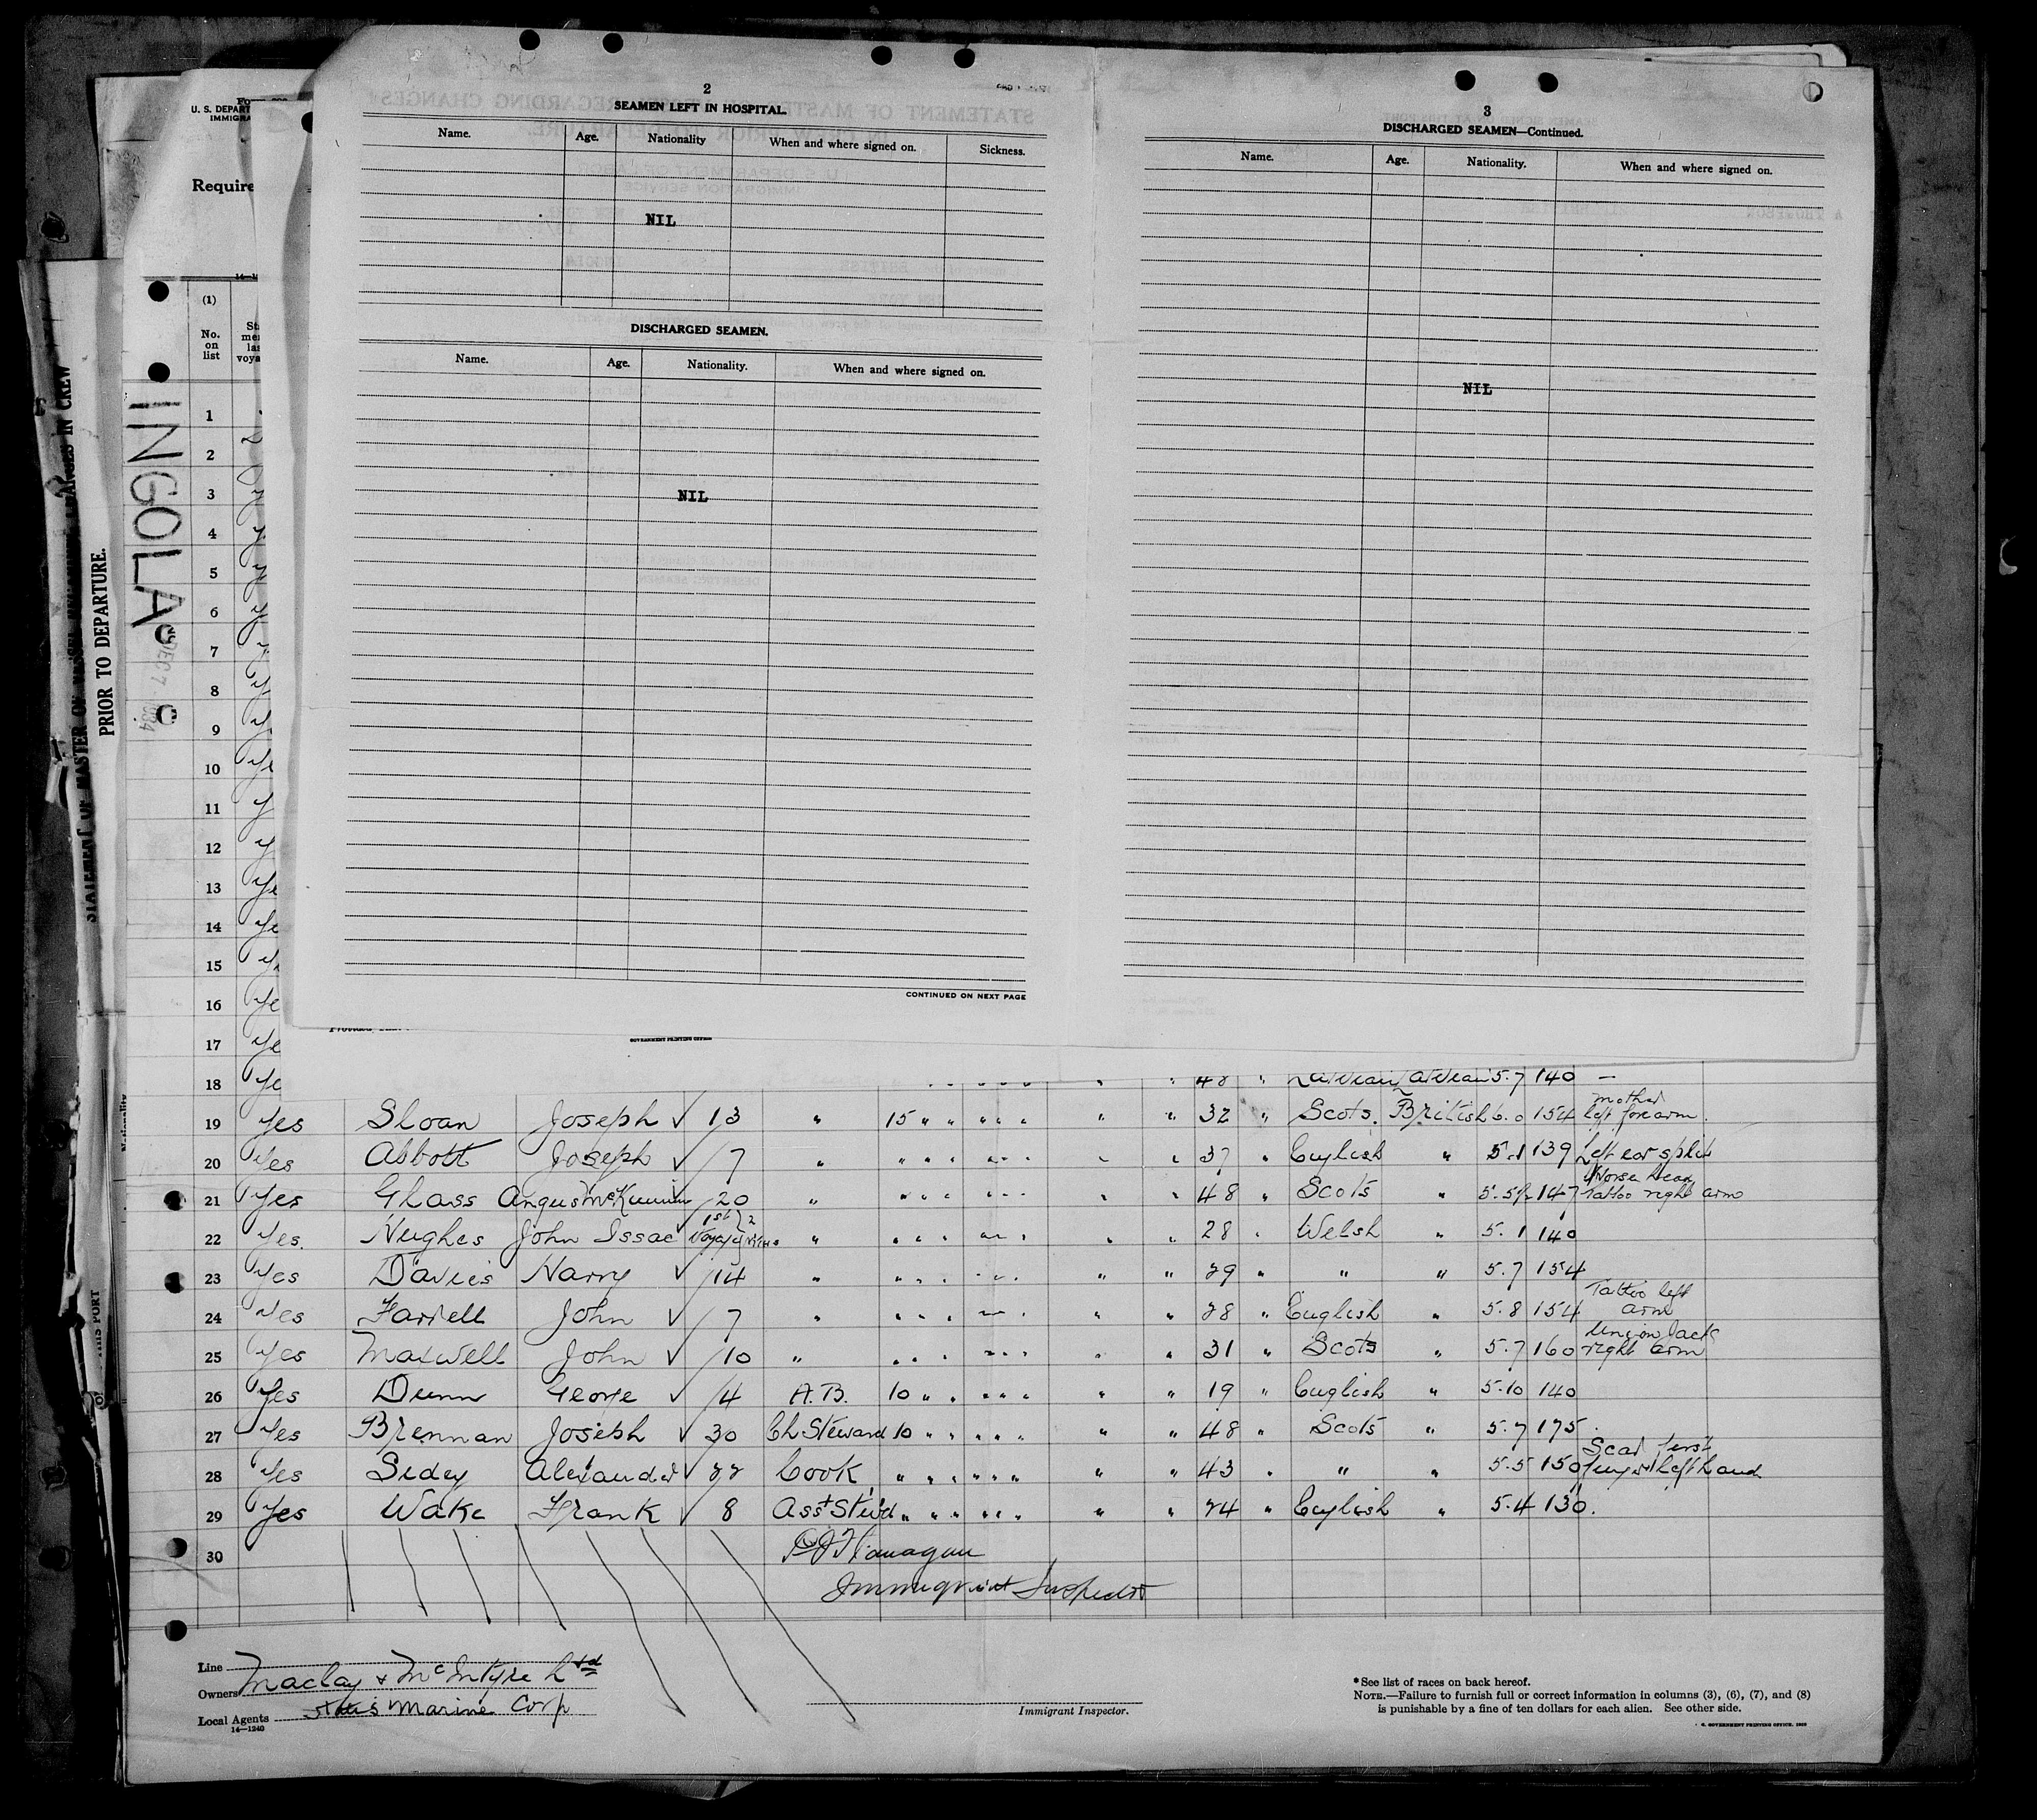 2
SEAMEN LEFT IN HOSPITAL.
Name. Age. Nationality When and where signed on. Sickness.
NIL
DISCHARGED SEAMEN.
Name. Age. Nationality. When and where signed on.
NIL
CONTINUED ON NEXT PAGE
3
DISCHARGED SEAMEN—Continued.
Name. Age. Nationality. When and where signed on.
NIL
U. S. DEPART
IMMIGRA
Require
(1)
No. on list
INGOLA
DEC 7 1934
PRIOR TO DEPARTURE.
STATEMENT OF MASTER OF VESSEL
IN CREW
THIS PORT
GOVERNMENT PRINTING OFFICE
1
2
3
4
5
6
7
8
9
10
11
12
13
14
15
16
17
18 48 " Latvian Latvian 5.7 140 —
19 Yes Sloan Joseph ✓ 13 " 15 " " " " " " " 32 " Scots. British 6.0 154 mother left forearm.
20 Yes Abbott Joseph ✓ 7 " " " " " " " " " 37 " English " 5.1 139 Left ear split
21 Yes Glass Angus 20 " " " " " " " " " 48 " Scots " 5.5½ 147 Horse head Tattoo right arm
22 Yes. Hughes John Issac 1st Voyage " " " " " " " " 28 " Welsh " 5.1 140
23 Yes Davies Harry ✓ 14 " " " " " " " " 29 " " " 5.7 154
24 Yes Farrell John ✓ 7 " " " " " " " " 28 " English " 5.8 154 Tattoo left arm
25 Yes Maxwell John ✓ 10 " " " " " " " " 31 " Scots " 5.7 160 Union Jack right arm
26 Yes Dunn George ✓ 4 A.B. 10 " " " " " " " 19 " English " 5.10 140
27 Yes Brennan Joseph ✓ 30 Ch Steward 10 " " " " " " " 48 " Scots " 5.7 175.
28 Yes Sidey Alexander ✓ 22 Cook " " " " " " " " 43 " " " 5.5 150 Scar first finger left hand
29 Yes Wake Frank ✓ 8 Asst Stew'd " " " " " " " " 24 " English " 5.4 130.
30 Flanagan
Immigrant Inspector
Line
Owners Maclay & McIntyre Ltd
Local Agents Marine Corp
14—1240
Immigrant Inspector.
*See list of races on back hereof.
NOTE.—Failure to furnish full or correct information in columns (3), (6), (7), and (8)
is punishable by a fine of ten dollars for each alien. See other side.